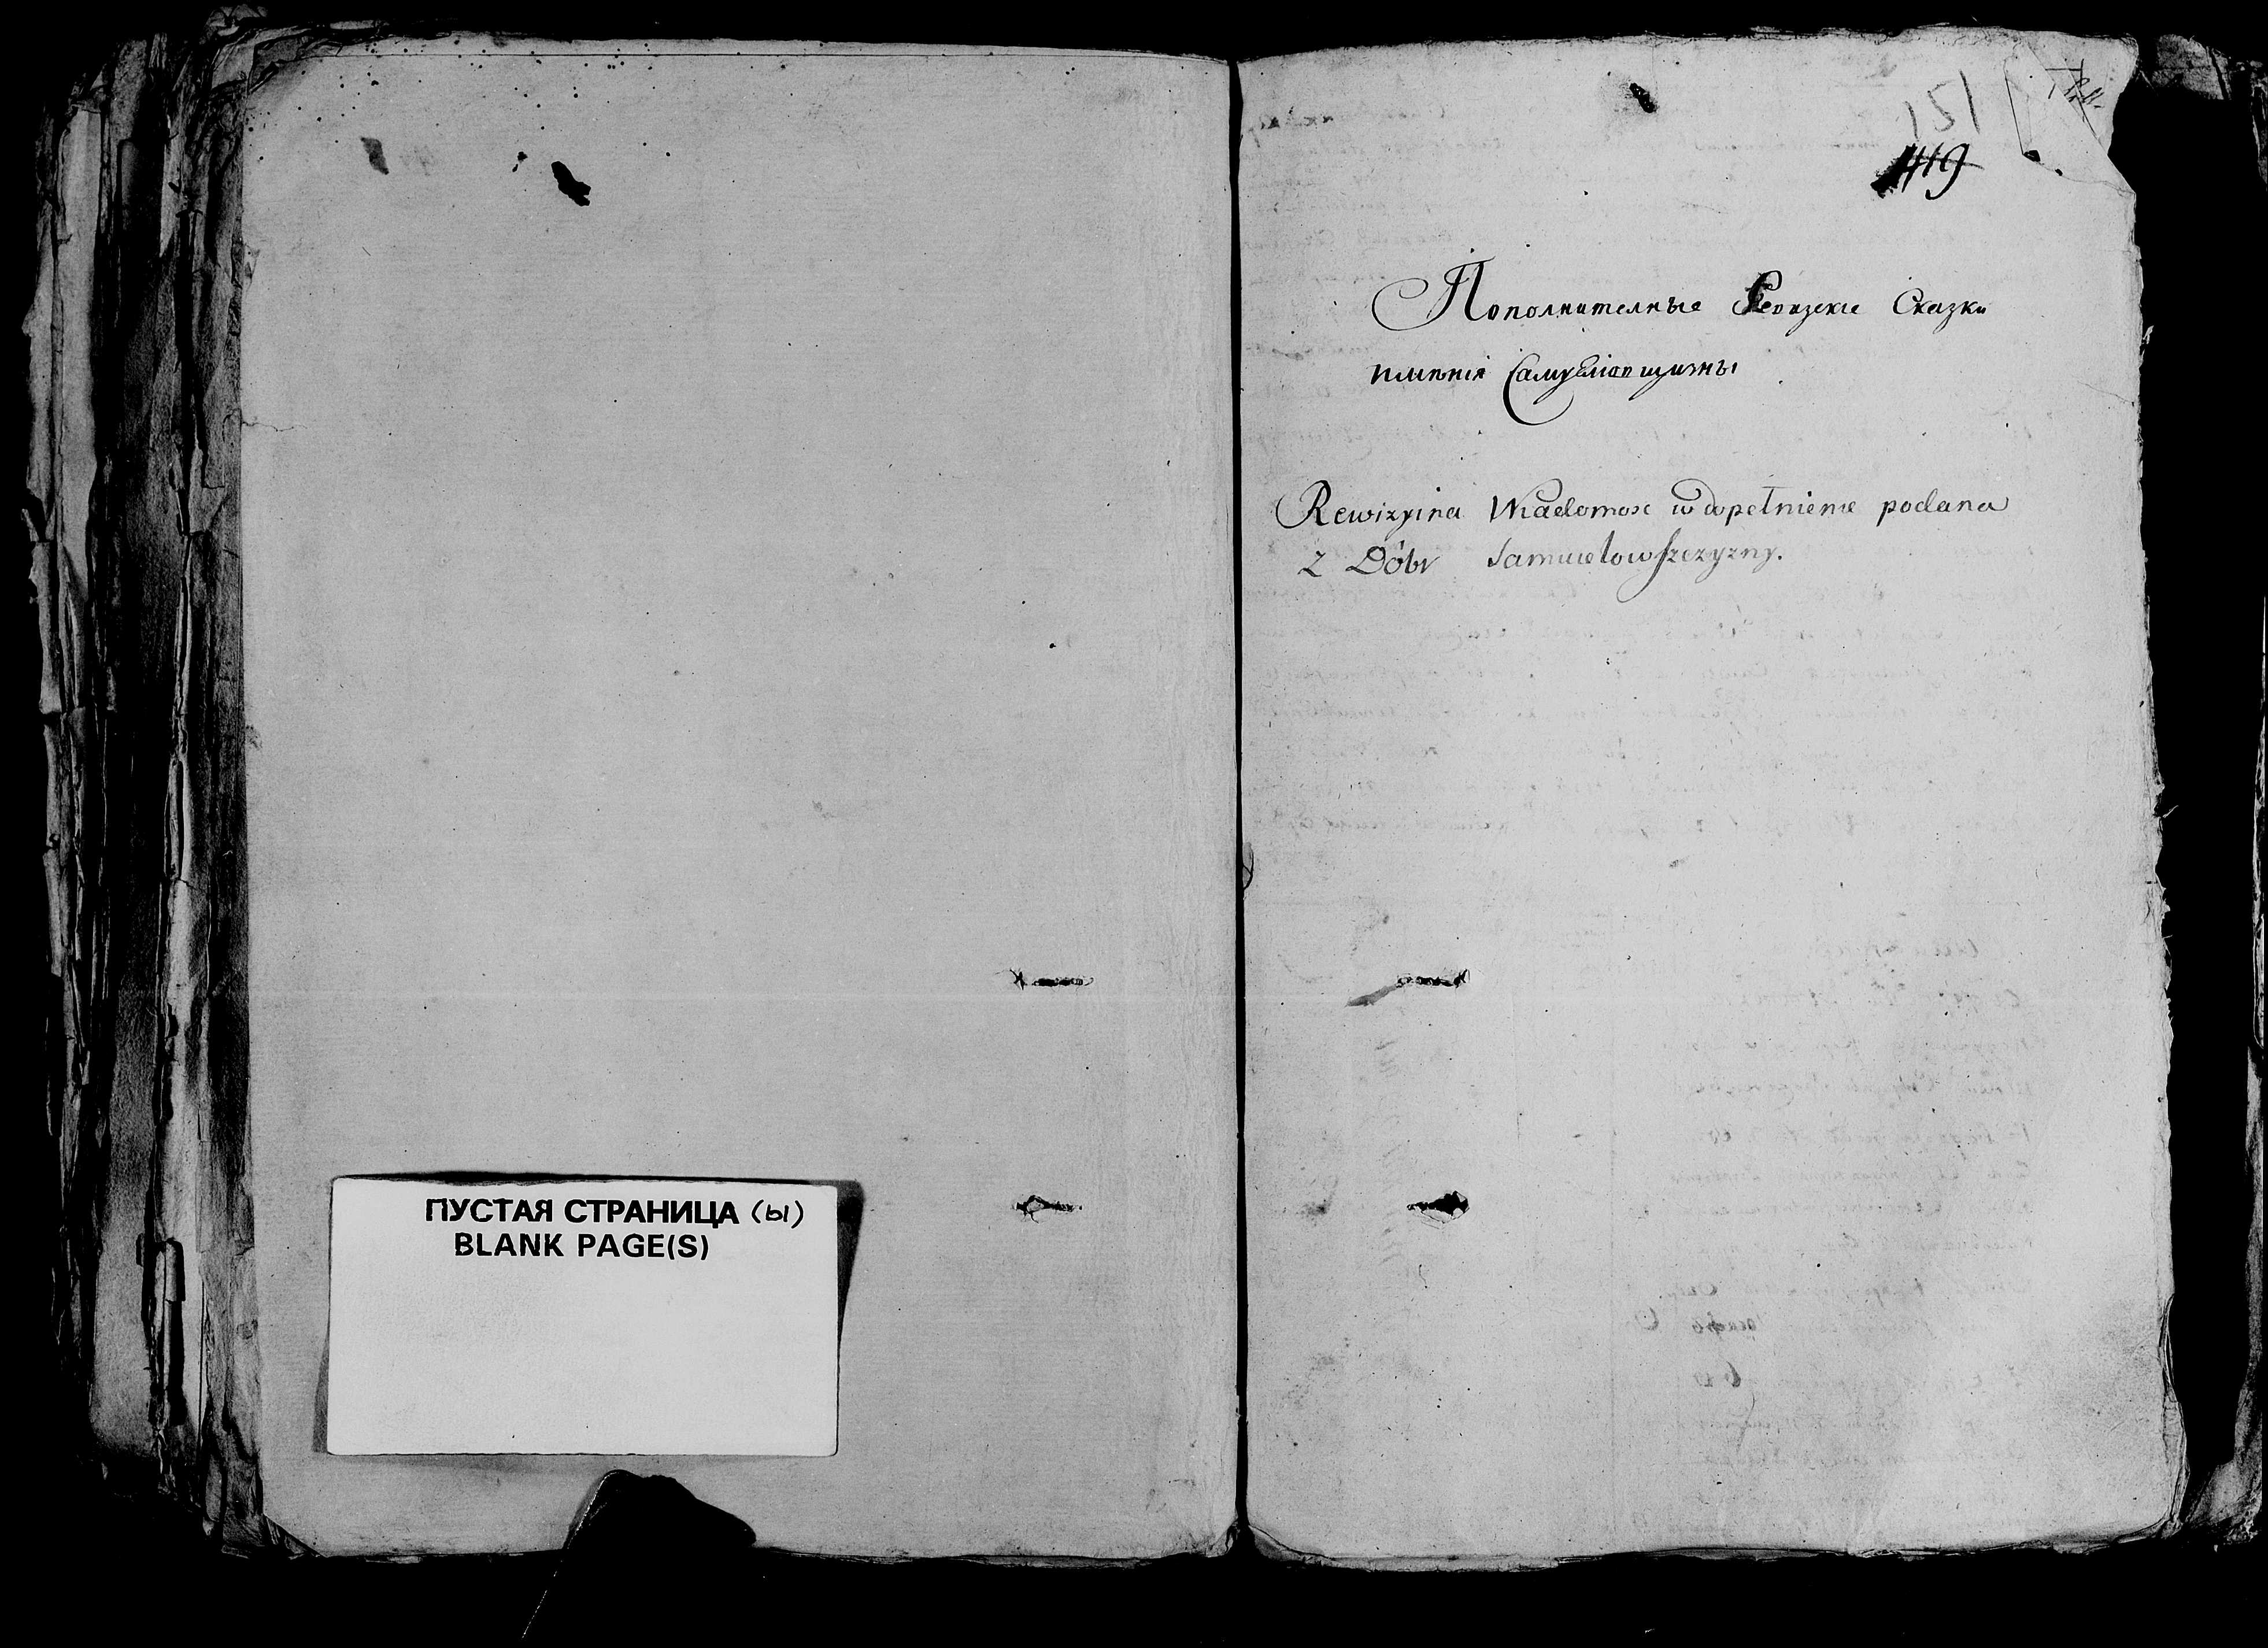 ПУСТАЯ СТРАНИЦА (ы)
BLANK PAGE(S)
151
119
Пополнителные Ревизские Сказки
имѣнія Самуеліовщизны
Rewizyina Wiadomosc w dopełnienie podana
z Dóbr Samuelowszczyzny.